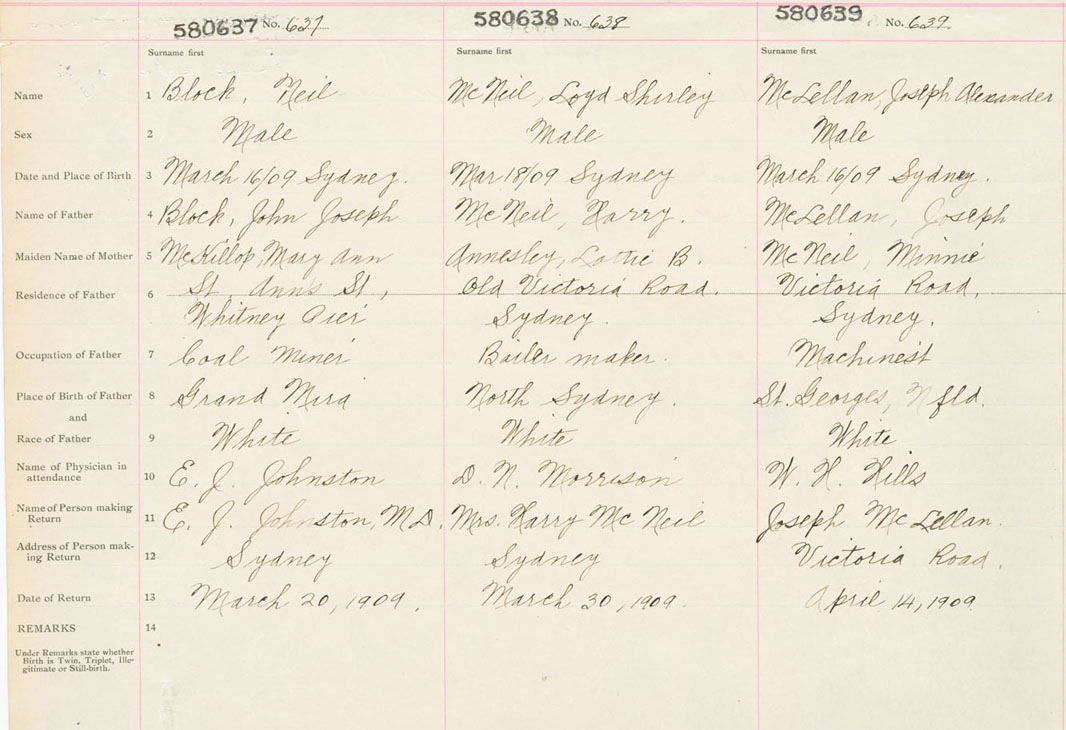 580637 No. 637 580638 No. 638 580639 No. 639
Surname first Surname first Surname first
Name 1 Block, Neil McNeil, Loyd Shirley McLellan, Joseph Alexander
Sex 2 Male Male Male
Date and Place of Birth 3 March 16/09 Sydney. Mar 18/09 Sydney March 16/09 Sydney.
Name of Father 4 Block, John Joseph McNeil, Harry. McLellan, Joseph
Maiden Name of Mother 5 McKillop, Mary Ann Annesley, Lottie B. McNeil, Minnie
Residence of Father 6 St Ann's St, Old Victoria Road. Victoria Road,
Whitney Pier Sydney. Sydney.
Occupation of Father 7 Coal Miner Boiler maker. Machinest
Place of Birth of Father 8 Grand Mira North Sydney. St. Georges, Nfld.
and
Race of Father 9 White White White
Name of Physician in
attendance 10 E. J. Johnston D. N. Morrison W. H. Hills
Name of Person making
Return 11 E. J. Johnston, M.D. Mrs. Harry McNeil Joseph McLellan.
Address of Person mak-
ing Return 12 Sydney Sydney Victoria Road.
Date of Return 13 March 20, 1909. March 30, 1909. April 14, 1909
REMARKS 14
Under Remarks state whether
Birth is Twin, Triplet, Ille-
gitimate or Still-birth.